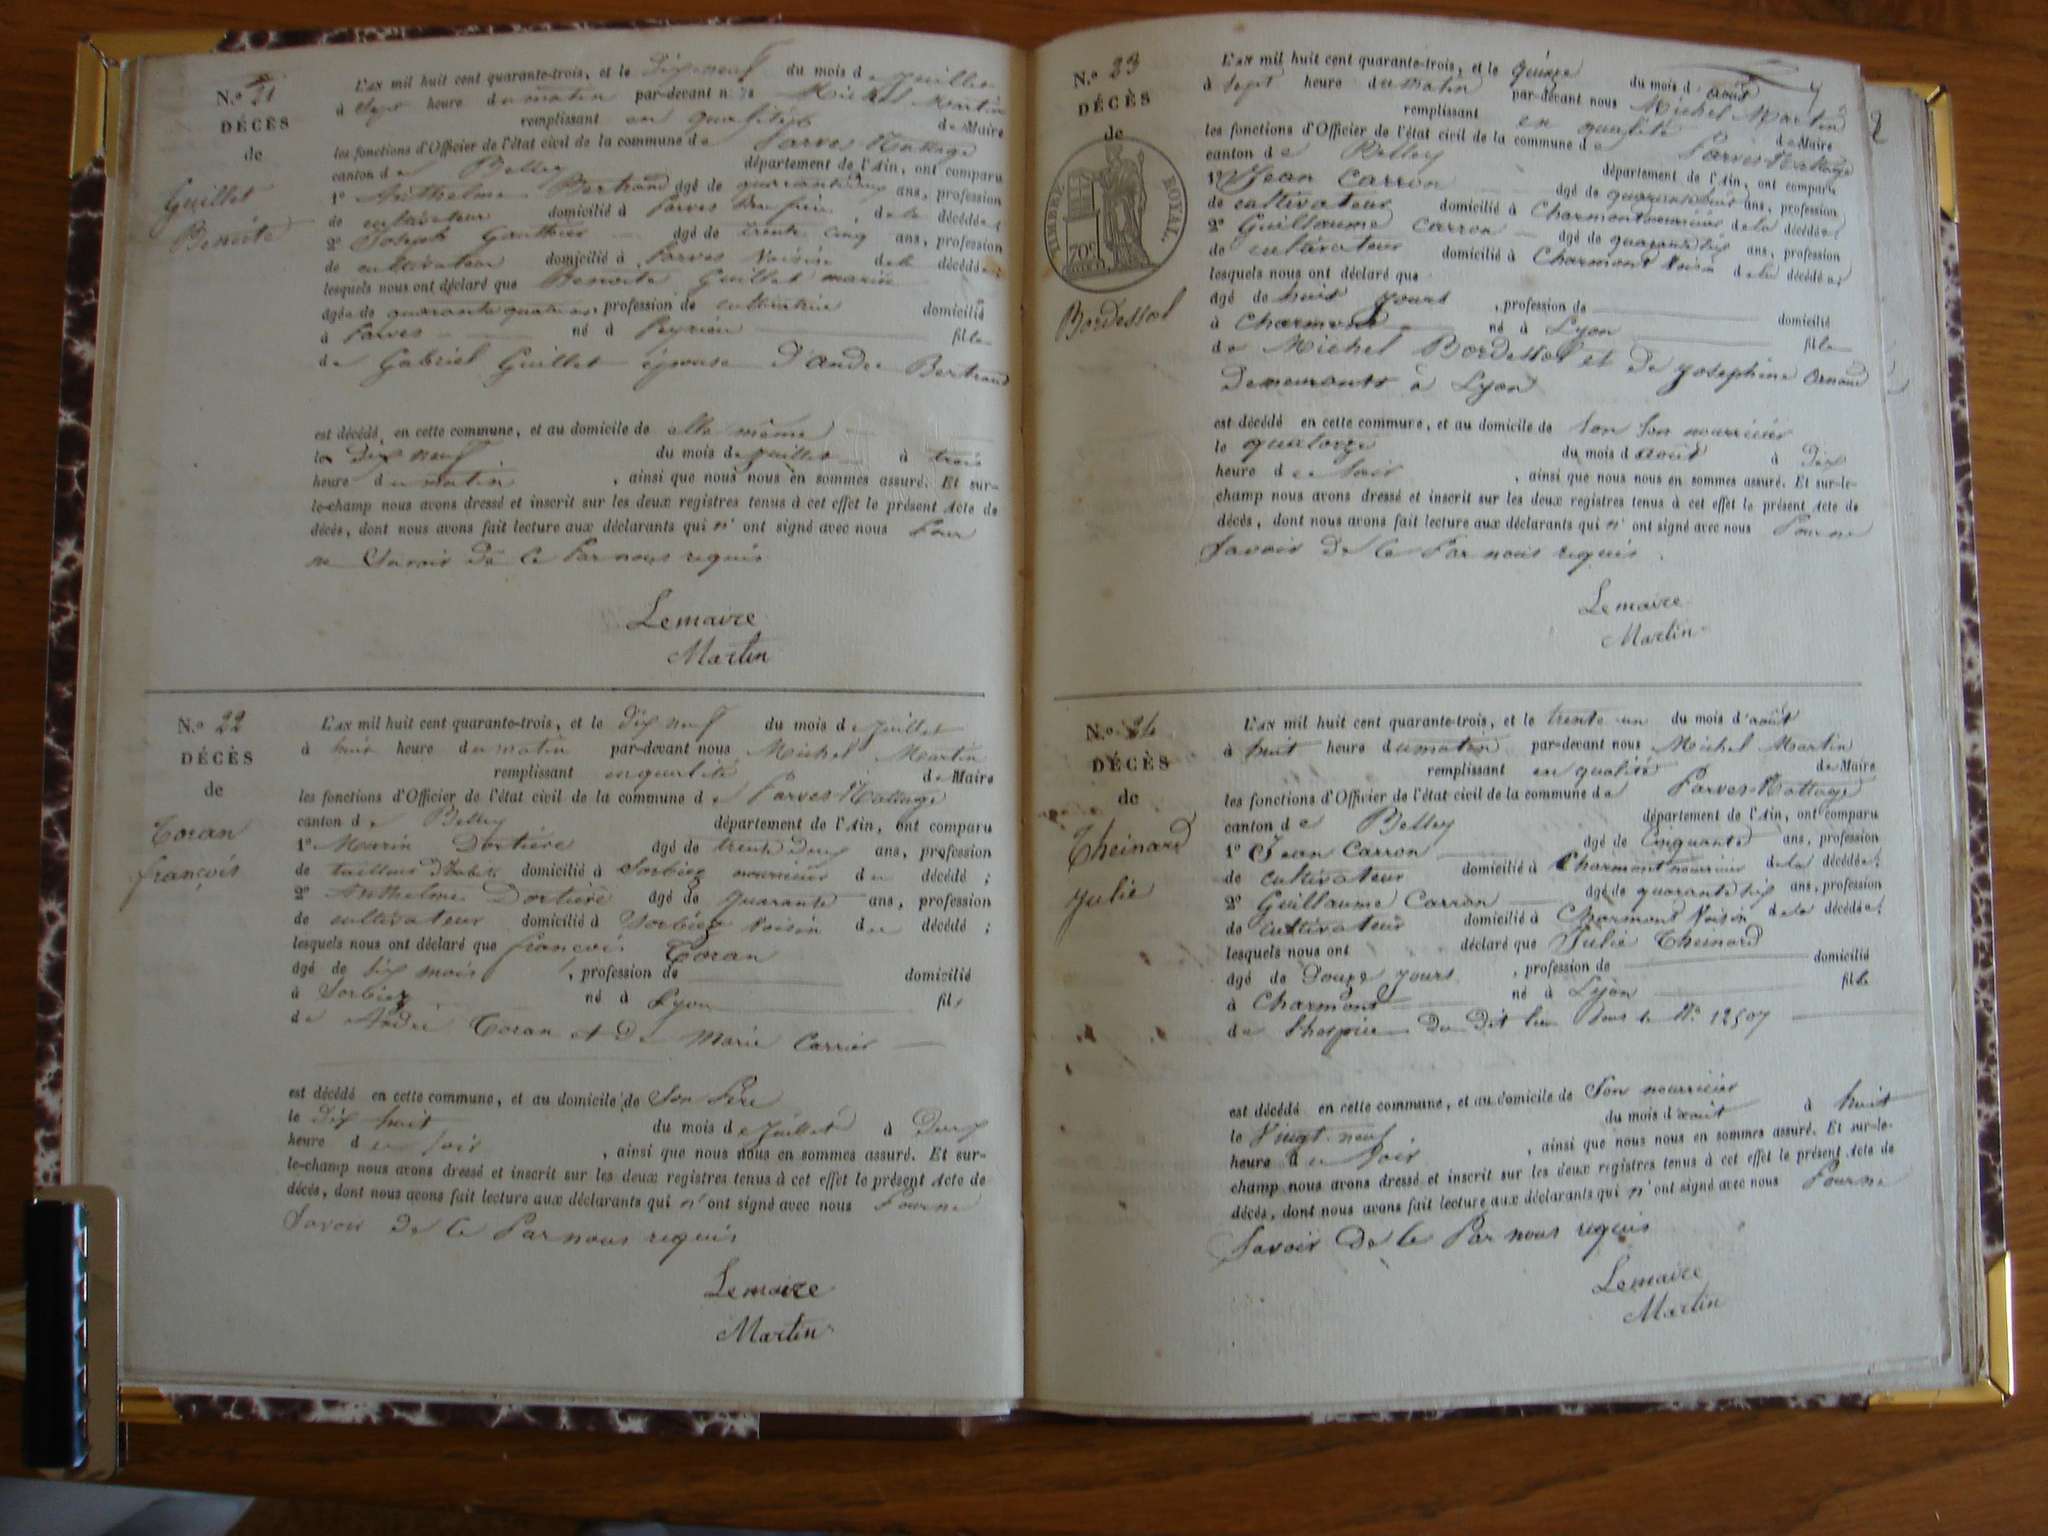 N.o 21
DÉCÈS
de
Guillet
Benoite
L'AN mil huit cent quarante-trois, et le dix neuf du mois de juillet
à sept heure du matin par-devant nous Michel Martin
remplissant en qualité de Maire
les fonctions d'Officier de l'état civil de la commune de Parves Nattage
canton de Belley département de l'Ain, ont comparu
1° Anthelme Bertrand âgé de quarante deux ans, profession
de cultivateur domicilié à Parves beau frère, de la décédée;
2° Joseph Gauthier âgé de trente cinq ans, profession
de cultivateur domicilié à Parves Voisin de la décédée;
lesquels nous ont déclaré que Benoite Guillet mariée
âgée de quarante quatre ans, profession de cultivatrice domicilié
à Parves né à Peyrieu fille
de Gabriel Guillet épouse d'André Bertrand
est décédé en cette commune, et au domicile de elle même
le dix neuf du mois de juillet à trois
heure du matin, ainsi que nous nous en sommes assuré. Et sur-
le-champ nous avons dressé et inscrit sur les deux registres tenus à cet effet le présent Acte de
décès, dont nous avons fait lecture aux déclarants qui n'ont signé avec nous Pour
ne Savoir de ce Par nous requis
Lemaire
Martin
N.o 22
DÉCÈS
de
Coran
françois
L'AN mil huit cent quarante-trois, et le dix neuf du mois de juillet
à huit heure du matin par-devant nous Michel Martin
remplissant en qualité de Maire
les fonctions d'Officier de l'état civil de la commune de Parves Nattage
canton de Belley département de l'Ain, ont comparu
1° Marin Dortière âgé de trente deux ans, profession
de tailleur d'habit domicilié à Sorbiez nourricier du décédé;
2° Anthelme Dortière âgé de quarante ans, profession
de cultivateur domicilié à Sorbiez Voisin du décédé;
lesquels nous ont déclaré que françois Coran
âgé de six mois, profession de domicilié
à Sorbiez né à Lyon fils
de André Coran et de Marie Carrier
est décédé en cette commune, et au domicile de Son Père
le dix huit du mois de juillet à deux
heure du soir, ainsi que nous nous en sommes assuré. Et sur-
le-champ nous avons dressé et inscrit sur les deux registres tenus à cet effet le présent Acte de
décès, dont nous avons fait lecture aux déclarants qui n'ont signé avec nous Pour ne
Savoir de ce Par nous requis
Lemaire
Martin
N.o 23
DÉCÈS
de
TIMBRE ROYAL.
70c
Bordessol
L'AN mil huit cent quarante-trois, et le quinze du mois d'août
à sept heure du matin par-devant nous Michel Martin
remplissant en qualité de Maire
les fonctions d'Officier de l'état civil de la commune de Parves Nattage
canton de Belley département de l'Ain, ont comparu
1° Jean Carron âgé de quarante huit ans, profession
de cultivateur domicilié à Charmont nourricier de la décédée;
2° Guillaume Carron âgé de quarante six ans, profession
de cultivateur domicilié à Charmont Voisin de la décédée;
lesquels nous ont déclaré que
âgé de huit jours, profession de domicilié
à Charmont né à Lyon fille
de Michel Bordessol et de Josephine Ornaud
Demeurants à Lyon
est décédé en cette commune, et au domicile de son son nourricier
le quatorze du mois d'août à dix
heure du soir, ainsi que nous nous en sommes assuré. Et sur-le-
champ nous avons dressé et inscrit sur les deux registres tenus à cet effet le présent Acte de
décès, dont nous avons fait lecture aux déclarants qui n'ont signé avec nous Pour ne
Savoir de ce Par nous requis
Lemaire
Martin
N.o 24
DÉCÈS
de
Theinard
Julie
L'AN mil huit cent quarante-trois, et le trente un du mois d'août
à huit heure du matin par-devant nous Michel Martin
remplissant en qualité de Maire
les fonctions d'Officier de l'état civil de la commune de Parves Nattage
canton de Belley département de l'Ain, ont comparu
1° Jean Carron âgé de Cinquante ans, profession
de cultivateur domicilié à Charmont nourricier de la décédée;
2° Guillaume Carron âgé de quarante six ans, profession
de cultivateur domicilié à Charmont Voisin de la décédée;
lesquels nous ont déclaré que Julie Theinard
âgé de Douze jours, profession de domicilié
à Charmont né à Lyon fille
de l'hospice du dit lieu Sous le No 12507
est décédé en cette commune, et au domicile de Son nourricier
le Vingt neuf du mois d'août à huit
heure du soir, ainsi que nous nous en sommes assuré. Et sur-le-
champ nous avons dressé et inscrit sur les deux registres tenus à cet effet le présent Acte de
décès, dont nous avons fait lecture aux déclarants qui n'ont signé avec nous Pour ne
Savoir de ce Par nous requis
Lemaire
Martin